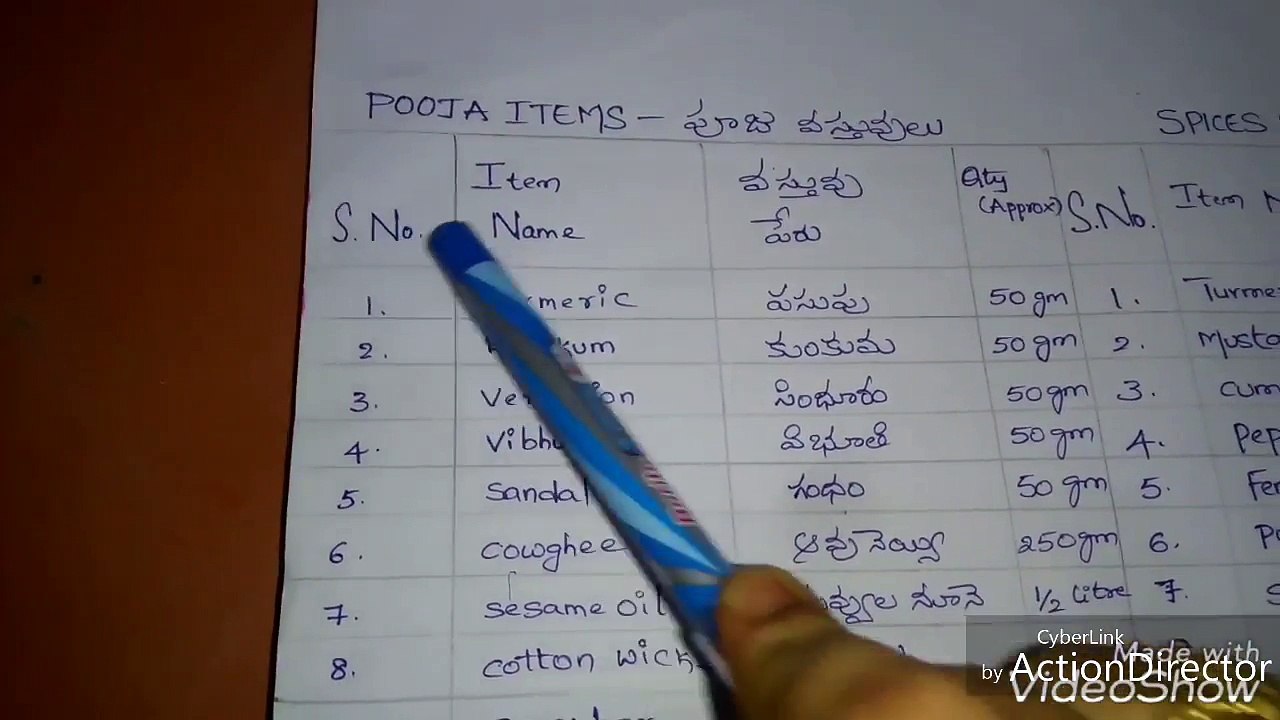 POOJA ITEMS - పూజ వస్తువులు SPICES
S. No. Item Name వస్తువు పేరు Qty (Approx) S.No. Item
1. పసుపు 50 gm 1. Turme
2. కుంకుమ 50 gm 2. Musta
3. సింధూరం 50 gm 3. Cum
4. విభూతి 50 gm 4. Pep
5. Sandal గంధం 50 gm 5. Fen
6. Cowghee ఆవు నెయ్యి 250gm 6.
7. Sesame oil నూనె 1/2 Litre 7.
8. Cotton wick
CyberLink
by ActionDirector
Made with
VideoShow